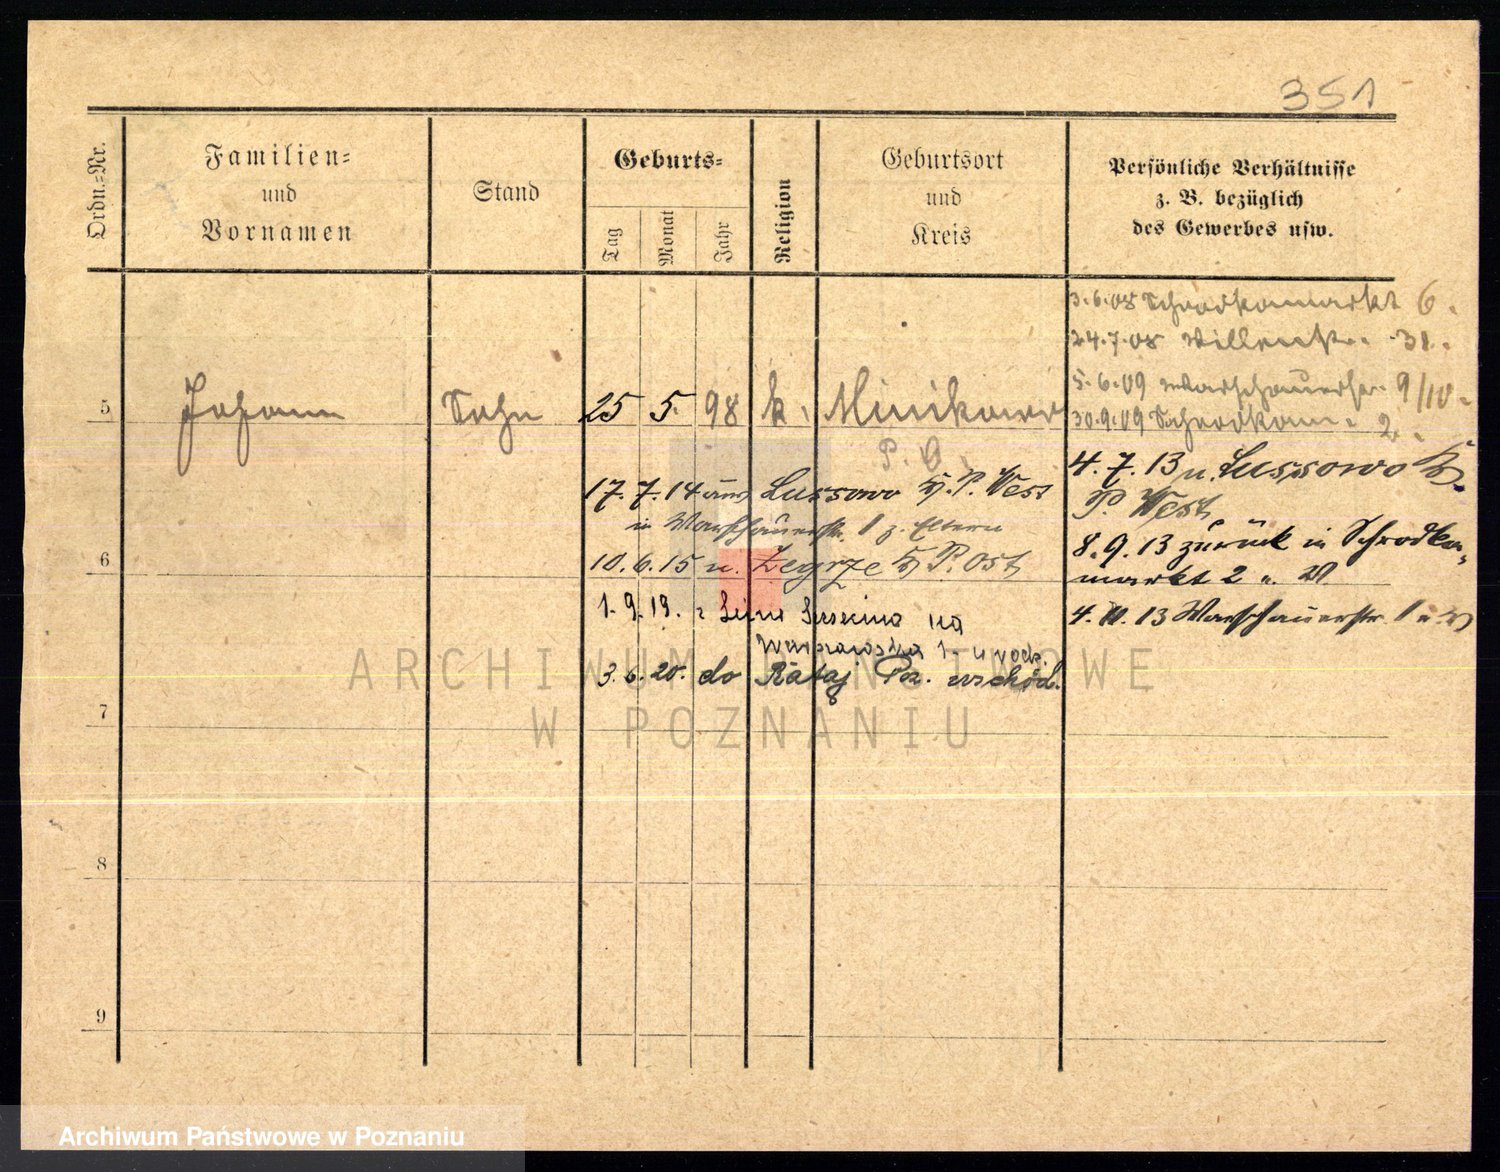 351
Ordn.=Nr.
Familien=
und
Vornamen
Stand
Geburts=
Tag
Monat
Jahr
Religion
Geburtsort
und
Kreis
Persönliche Verhältnisse
z. B. bezüglich
des Gewerbes usw.
3.6.08 Schrodkamarkt 6.
24.7.08 31.
5.6.09 Warschauerstr. 9/10.
30.9.09 Schrodkam. 2.
5 Johann Sohn 25 5. 98 k. Minikowo
P. O.
4.7.13 n. Lussowo K.
P. West
17.7.14 aus Lussowo K. P. West
in Warschauerstr. 1 z. Eltern
8.9.13 zurück in Schrodka-
markt 2
6
10.6.15 n. Zegrze K P. Ost
4.11.13 Warschauerstr. 1
1.9.19. z na
Warszawska 1.
3.6.20. do Rataj Poz. wschód.
7
8
9
ARCHIWUM PAŃSTWOWE
W POZNANIU
Archiwum Państwowe w Poznaniu